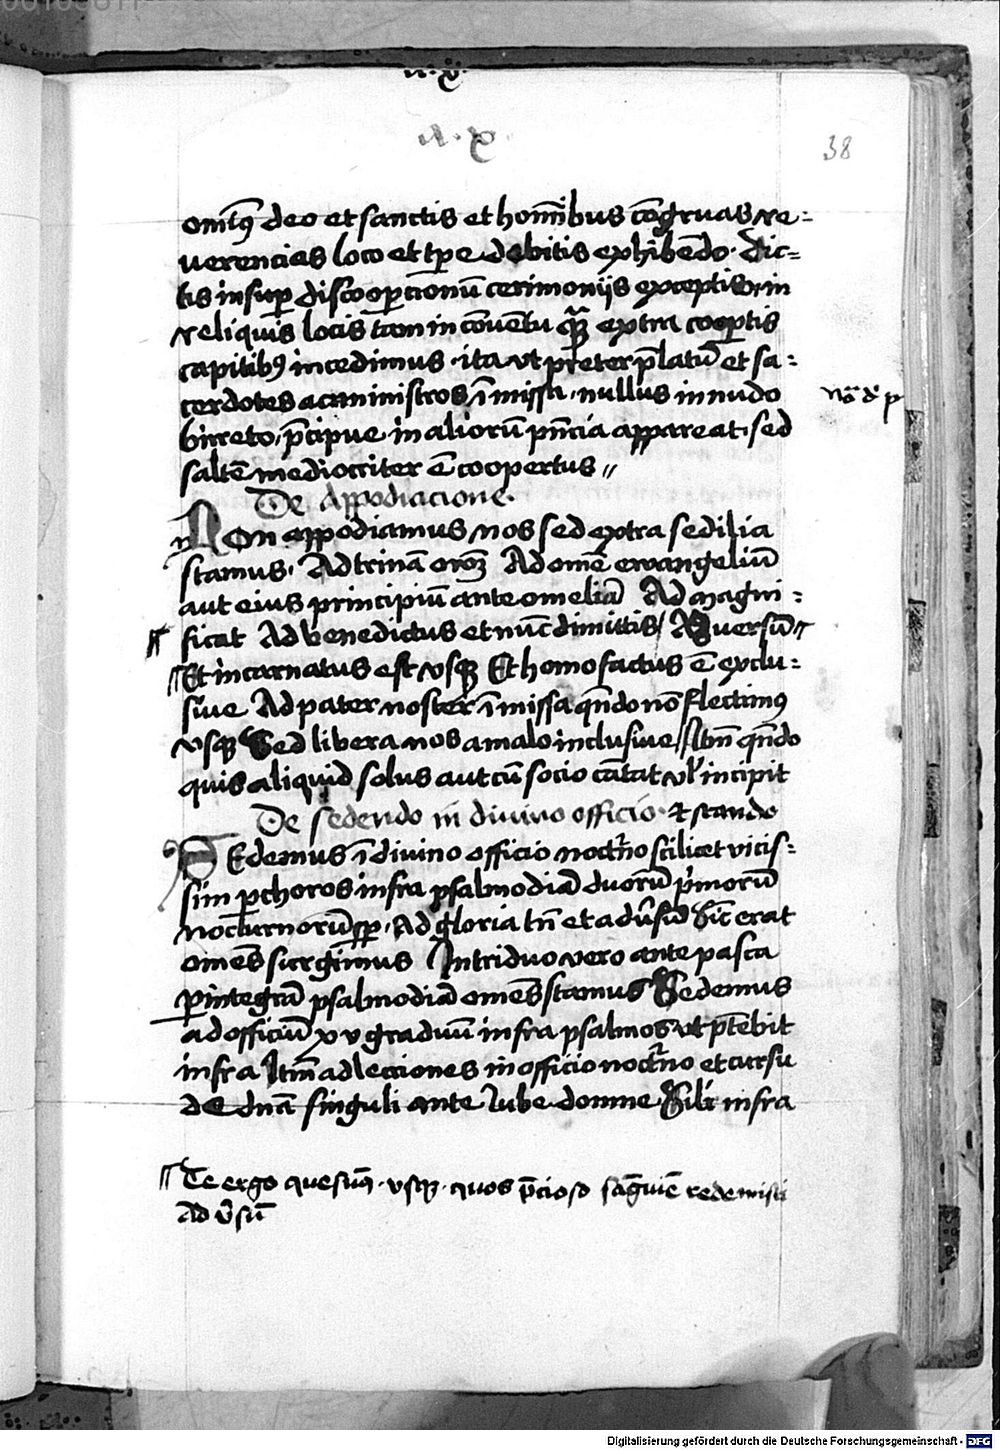 38
omītꝰ deo et sanctis et homībus cōgruas re-
uerencias loco et tpe debitis exhibēdo. Dic-
tis insuꝑ discooꝑcionū cerimonijs exceptis, in
reliquis locis tam in cōuētu qͣꝫ extra cooꝑtis
capitibꝰ incedimus. ita vt preter p̄latū et sa-
cerdotes ac ministros ī missa, nullus in nudo
birreto, p̄cipue in aliorū pn̄cia appareat, sed
saltē mediocriter ē coopertus //
De Appodiacione.
Non appodiamus nos sed extra sedilia
stamus. Ad trinā oroꝫ Ad omē ewangeliū
aut eius principiū ante omeliā Ad magni-
ficat Ad benedictus et nūc dimittis / Ad uersū
Et incarnatus est vsqꝫ Et homo factus ē exclu-
siue Ad pater noster ī missa qn̄do nō flectimꝰ
vsqꝫ Sed libera nos a malo inclusiue / Itm̄ qn̄do
quis aliquid solus aut cū socio cātat vl' incipit
De sedendo in diuino officio. et stando
Sedemus ī diuino officio noct'no scilicet vicis-
sim ꝑ choros infra psalmodiā duorū p'morū
nocturnorū sꝑ, Ad gloria tn̄ et ad v̄sū Sic erat
omēs surgimus In triduo vero ante pasca
ꝑ integrā psalmodiā omēs stamus Sedemus
ad officiū xv graduū infra psalmos, vt pt̄ebit
infra Itm̄ ad lectiones in officio noct'no et cursu
de dn̄a singuli ante Iube domne Silr infra
Te ergo quesumꝰ. vsqꝫ. quos p̄cioso sāguīe redemisti
Ad v̄sū